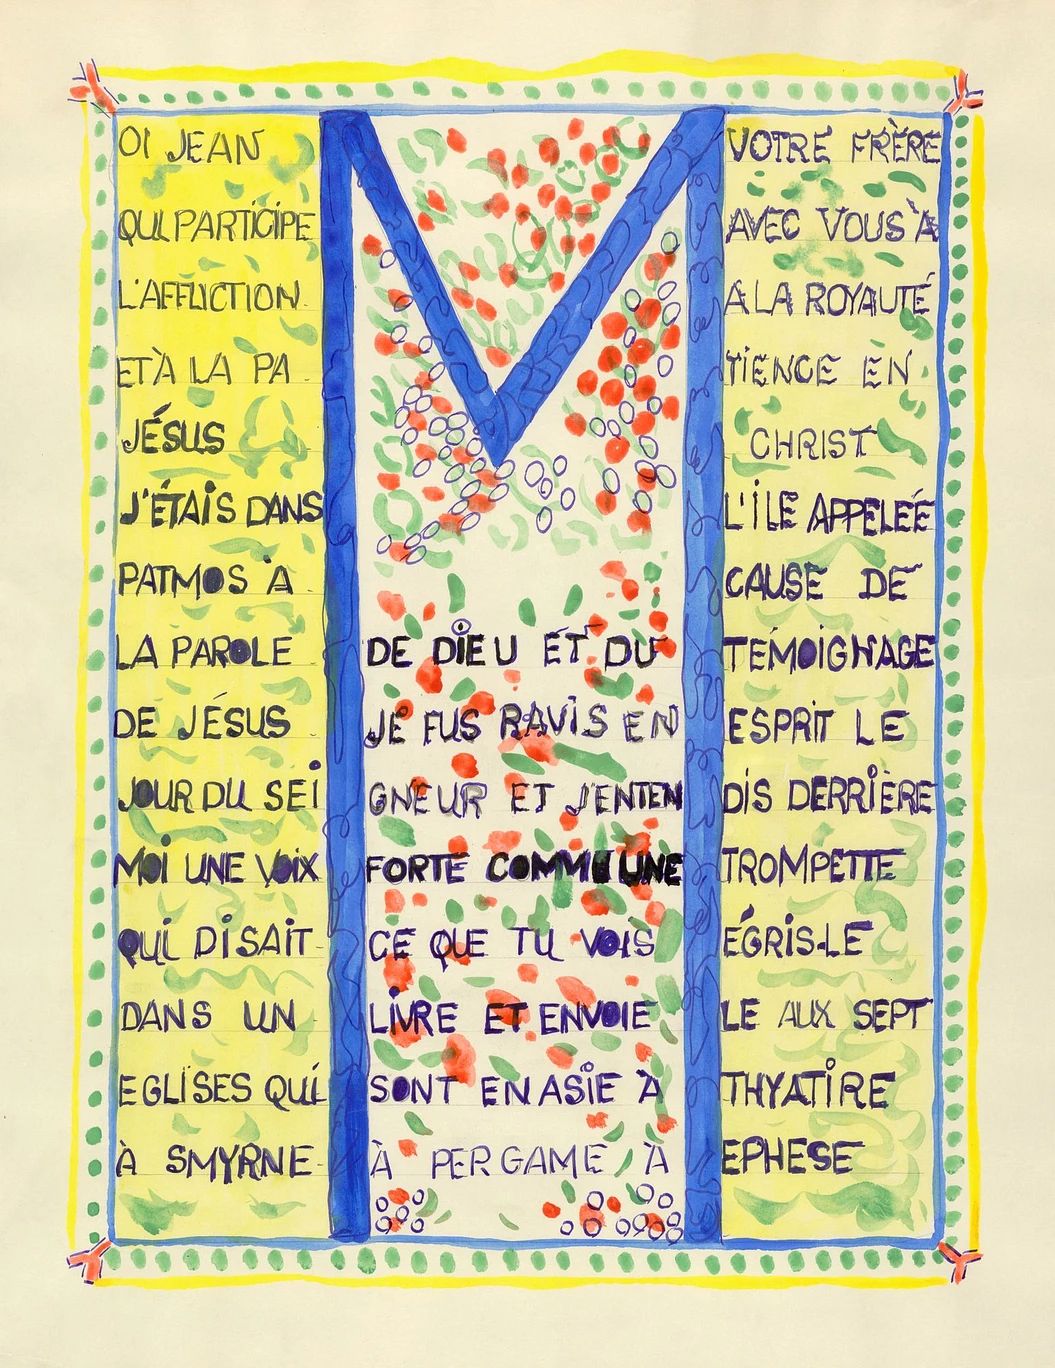 M
OI JEAN VOTRE FRÈRE
QUI PARTICIPE AVEC VOUS À
L'AFFLICTION A LA ROYAUTÉ
ET À LA PA TIENCE EN
JÉSUS CHRIST
J'ÉTAIS DANS L'ILE APPELEÉ
PATMOS À CAUSE DE
LA PAROLE DE DIEU ET DU TEMOIGNAGE
DE JÉSUS JE FUS RAVIS EN ESPRIT LE
JOUR DU SEI GNEUR ET J'ENTEN DIS DERRIÈRE
MOI UNE VOIX FORTE COMME UNE TROMPETTE
QUI DISAIT CE QUE TU VOIS ÉCRIS-LE
DANS UN LIVRE ET ENVOIE LE AUX SEPT
EGLISES QUI SONT EN ASIE À THYATIRE
À SMYRNE À PERGAME, À EPHESE